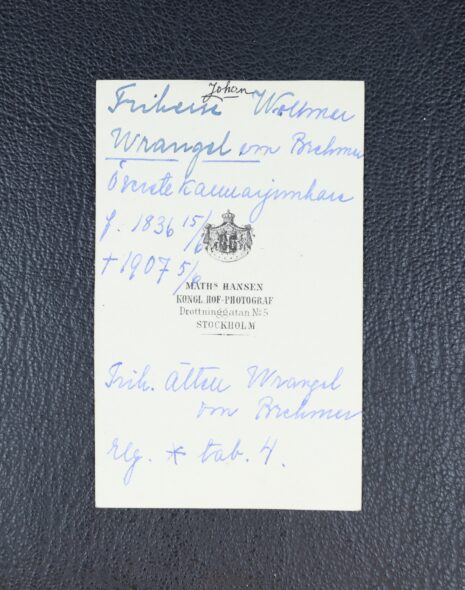 Johan
Friherre Wollmer
Wrangel von Brehmer
Överstekammarjunkare
f. 1836 15/6
† 1907 5/9
MATHS HANSEN
KONGL. HOF-PHOTOGRAF
Drottninggatan No 5
STOCKHOLM
Frih. ätten Wrangel
von Brehmer
* tab. 4.